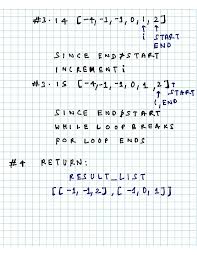 #3.14 [-4,-1,-1,0,1,2]
i START
END
SINCE END≯START
INCREMENT i
#3.15 [-4,-1,-1,0,1,2]
START
i, END
SINCE END≯START
WHILE LOOP BREAKS
FOR LOOP ENDS
#4 RETURN:
RESULT_LIST
[[-1,-1,2],[-1,0,1]]